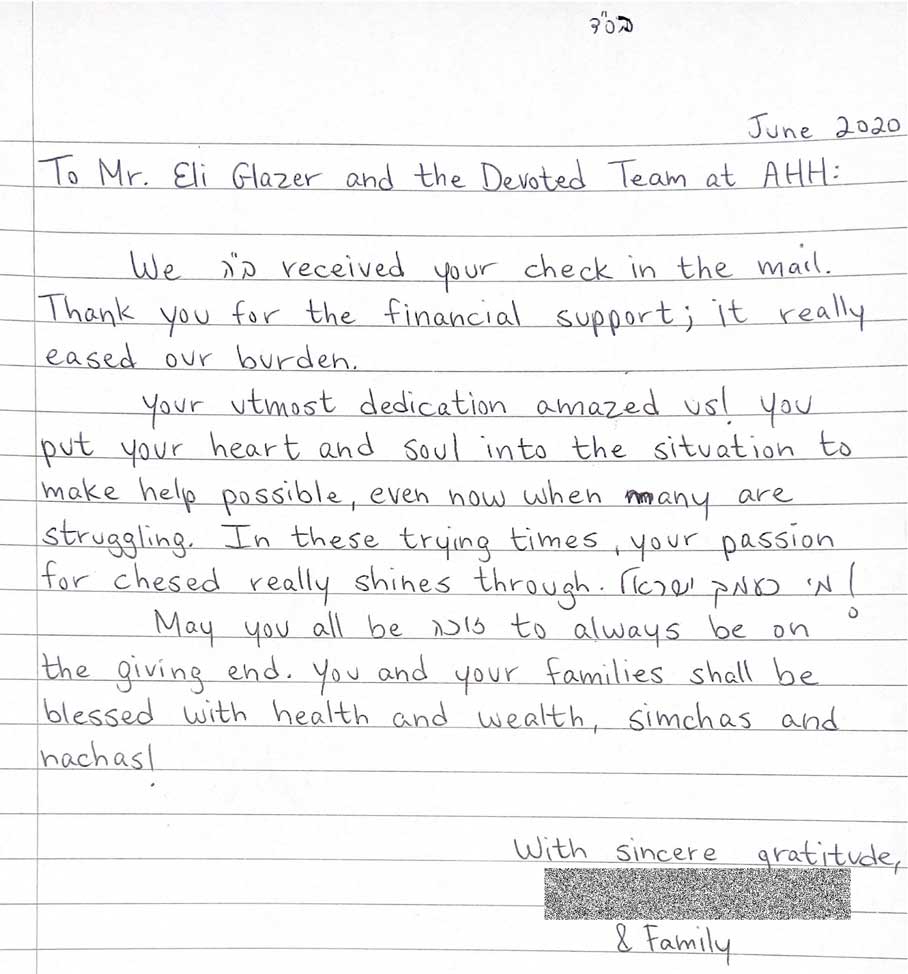 בס"ד
June 2020
To Mr. Eli Glazer and the Devoted Team at AHH:
We ב"ה received your check in the mail.
Thank you for the financial support; it really
eased our burden.
Your utmost dedication amazed us! You
put your heart and soul into the situation to
make help possible, even now when many are
struggling. In these trying times, your passion
for chesed really shines through. מי כעמך ישראל!
May you all be זוכה to always be on
the giving end. You and your families shall be
blessed with health and wealth, simchas and
nachas!
With sincere gratitude,
& Family